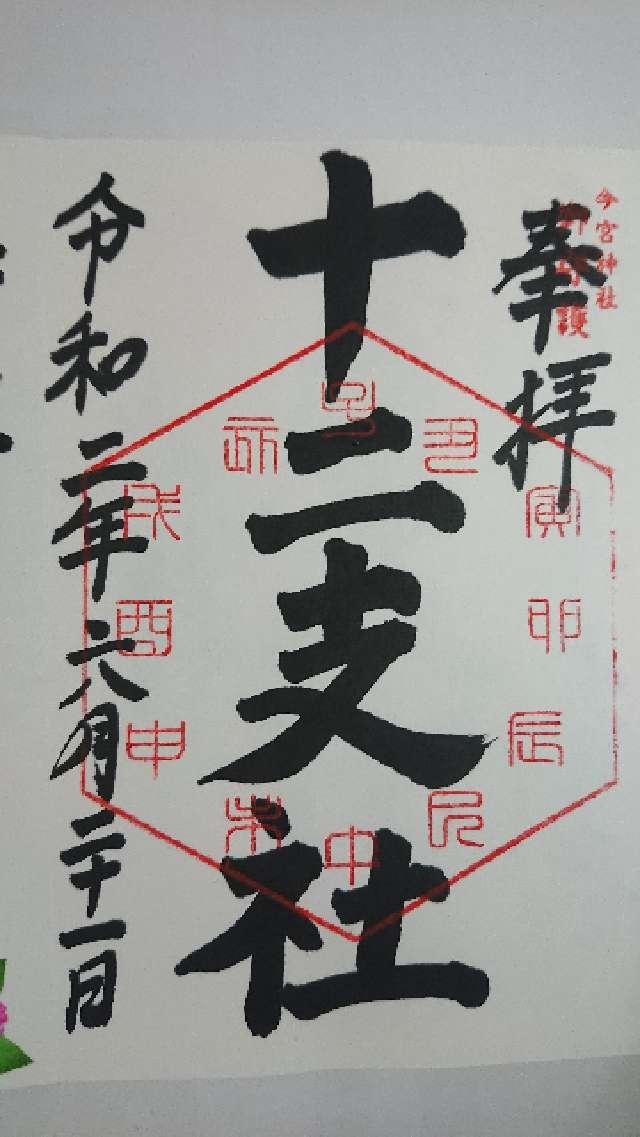 今宮神社
奉拝
十二支社
令和二年六月二十一日
子
丑
寅
卯
辰
巳
午
未
申
酉
戌
亥